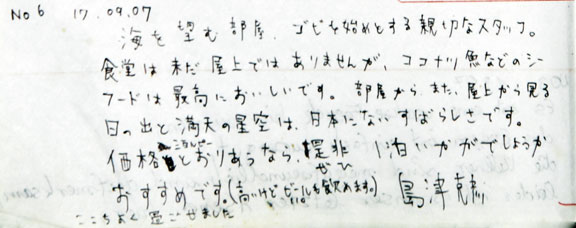 No 6 17.09.07
海を望む部屋、ゴビを始めとする親切なスタッフ。
食堂は未だ屋上ではありませんが、ココナツ魚などのシー
フードは最高においしいです。部屋から、また、屋上から見る
日の出と満天の星空は、日本にないすばらしさです。
価格とおりあうなら、是非 1泊いかがでしょうか
ぜひ
おすすめです。(高いけどビールも飲めます。) 島津
ここちよく過ごせました